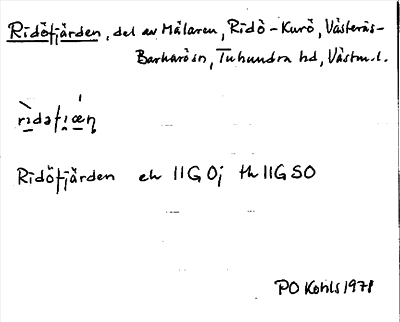 Ridöfjärden, del av Mälaren, Ridö-Kurö, Västerås-
Barkarö sn, Tuhundra hd, Västm.l.
Ridöfjärden ek 11G 0j th 11G SO
PO Kohls 1978